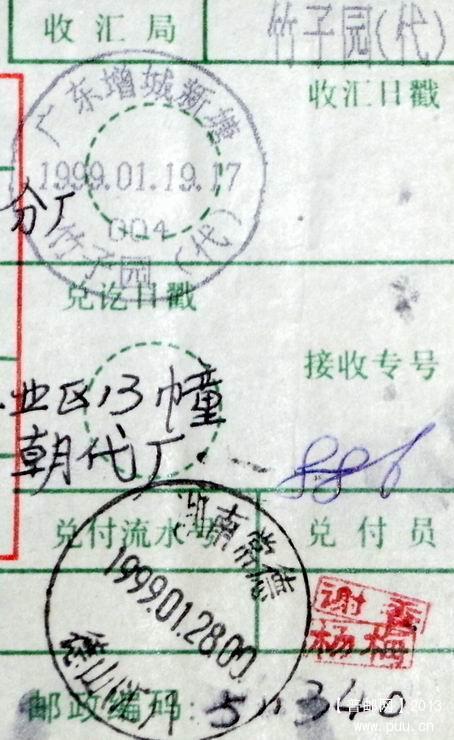 收汇局 竹子园(代)
收汇日戳
广东增城新塘
1999.01.19.17
004
竹子园(代)
分厂
兑讫日戳
接收专号
业区13幢
886
朝代厂
兑付流水号 兑付员
湖南常德
1999.01.28.00
谢
杨梅
邮政编码:
【首邮网】2013
www.puu.cn